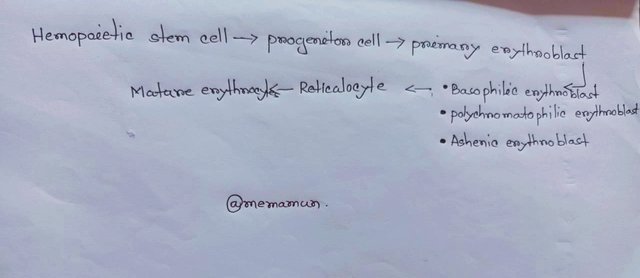 Hemopoietic stem cell → progeniton cell → primany erythnoblast
Matane erythnocyte ← Reticalocyte ← • Basophilic erythnoblast
• polychnomatophilic erythnoblast
• Ashenic erythnoblast
@memamun.